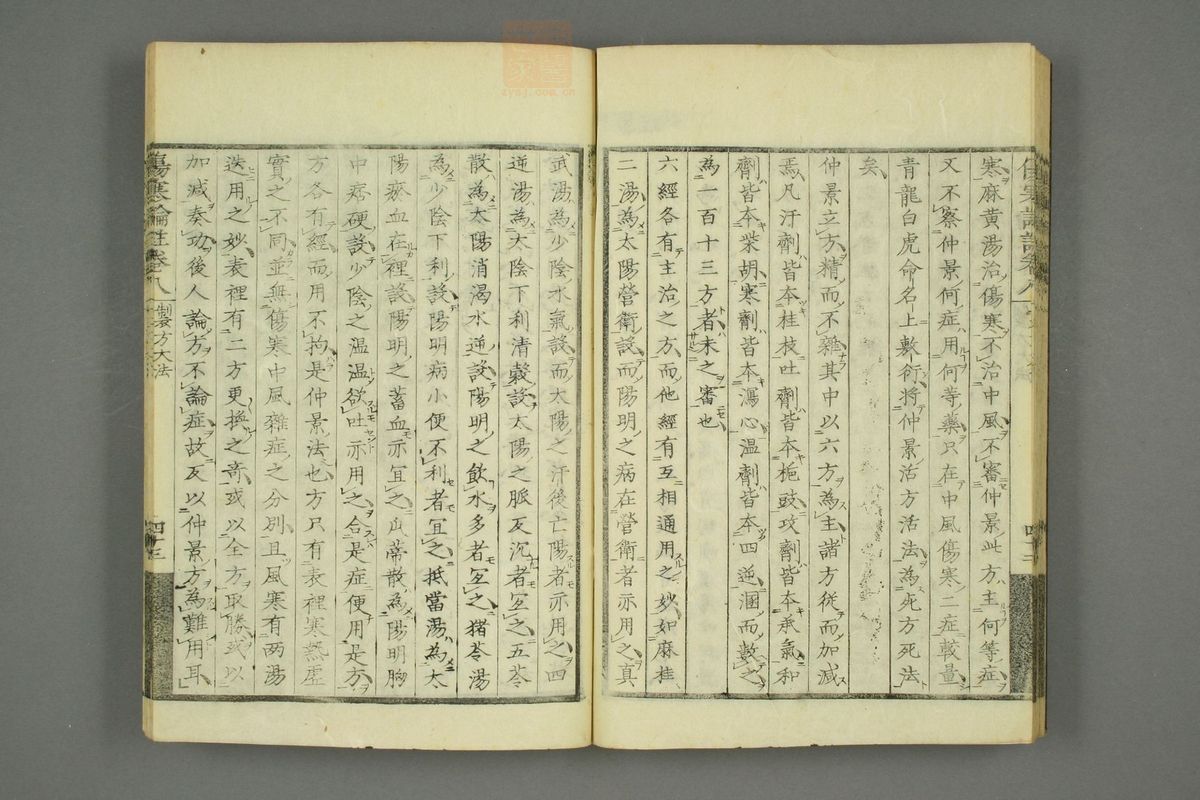 寒麻黃湯治傷寒不治中風不審仲景此方主何等症
又不察仲景何症用何等藥只在中風傷寒二症較量
青龍白虎命名上敷衍將仲景活方活法為死方死法
矣
仲景立方精而不雜其中以六方為主諸方從而加減
焉凡汗劑皆本桂枝吐劑皆本梔豉攻劑皆本承氣和
劑皆本柴胡寒劑皆本瀉心溫劑皆本四逆溷而數之
為一百十三方者未之審也
六經各有主治之方而他經有互相通用之妙如麻桂
二湯為太陽營衛設而陽明之病在營衛者亦用之真
武湯為少陰水氣設而太陽之汗後亡陽者亦用之四
逆湯為太陰下利清穀設太陽之脈反沉者宜之五苓
散為太陽消渴水逆設陽明之飲水多者宜之猪苓湯
為少陰下利設陽明病小便不利者宜之抵當湯為太
陽瘀血在裡設陽明之蓄血亦宜之瓜蒂散為陽明胸
中痞硬設少陰之温温欲吐亦用之合是症便用是方
方各有經而用不拘是仲景法也方只有表裡寒熱虛
實之不同並無傷寒中風雜症之分別且風寒有两湯
迭用之妙表裡有二方更換之竒或以全方取勝或以
加減奏功後人論方不論症故反以仲景方為難用耳
傷寒論註卷八 製方大法 四十三